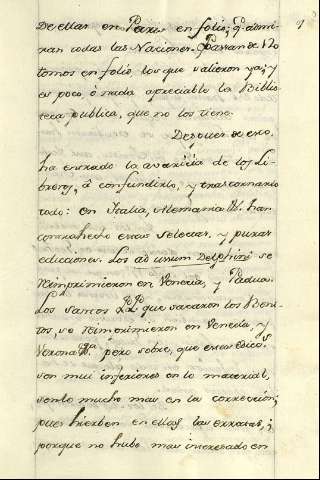 De ellas en Paris en folio; q.e admi-
ran todas las Naciones. Passan de
tomos en folio los que salieron ya; y
es poco, ò nada apreciable la Biblio
teca publica, que no los tiene.
Despues de eso,
ha entrado la avaricia de los Li-
breros, â confundirlo, y trastornarlo
todo: en Italia, Alemania &. han
contrahecho esas selectas, y puras
ediciones. Los ad usum Delphini se
reimprimieron en Venecia, y Padua.
Los Santos PP. que sacaron los Beni-
tos, se reimprimieron en Venecia, y
Verona &.a pero sobre, que esas edico.s
son mui inferiores en lo material,
sonlo mucho mas en la correccion;
pues hierben en ellas las erratas; y
porque no hubo mas interesado en